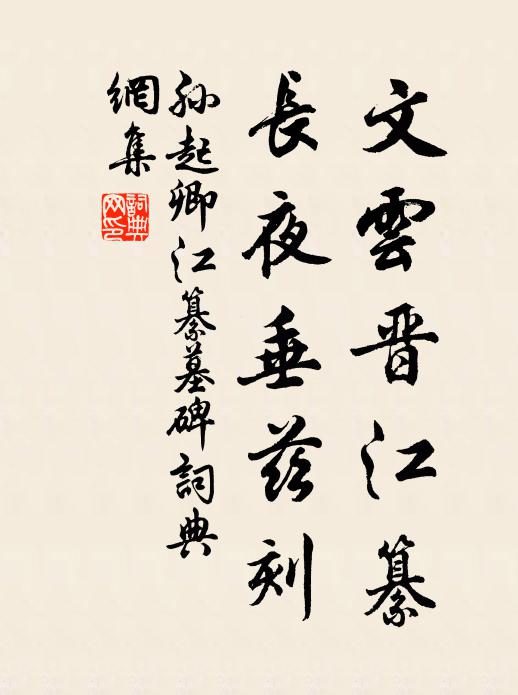 文雲晋江纂
長夜垂茲刻
孫起卿江纂墓碑詞典
網集
詞典網印